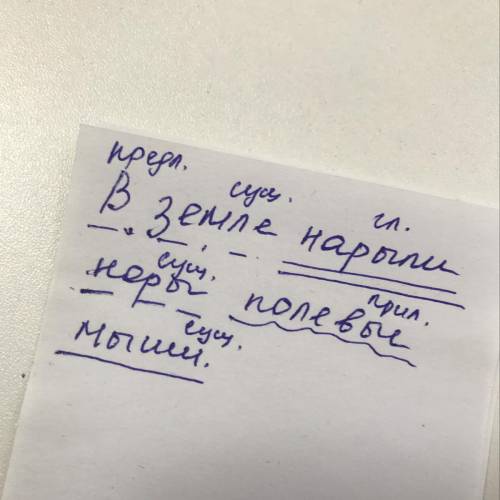 предл. сущ. гл.
В земле нарыли
сущ. прил.
норы полевые
сущ.
мыши.